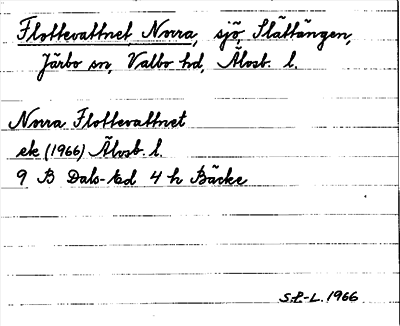 Flottevattnet, Norra, sjö, Slättängen,
Järbo sn, Valbo hd, Älvsb. l.
Norra Flottevattnet
ek (1966) Älvsb. l.
9 B Dals-Ed 4 h Bäcke
S.P.-L. 1966